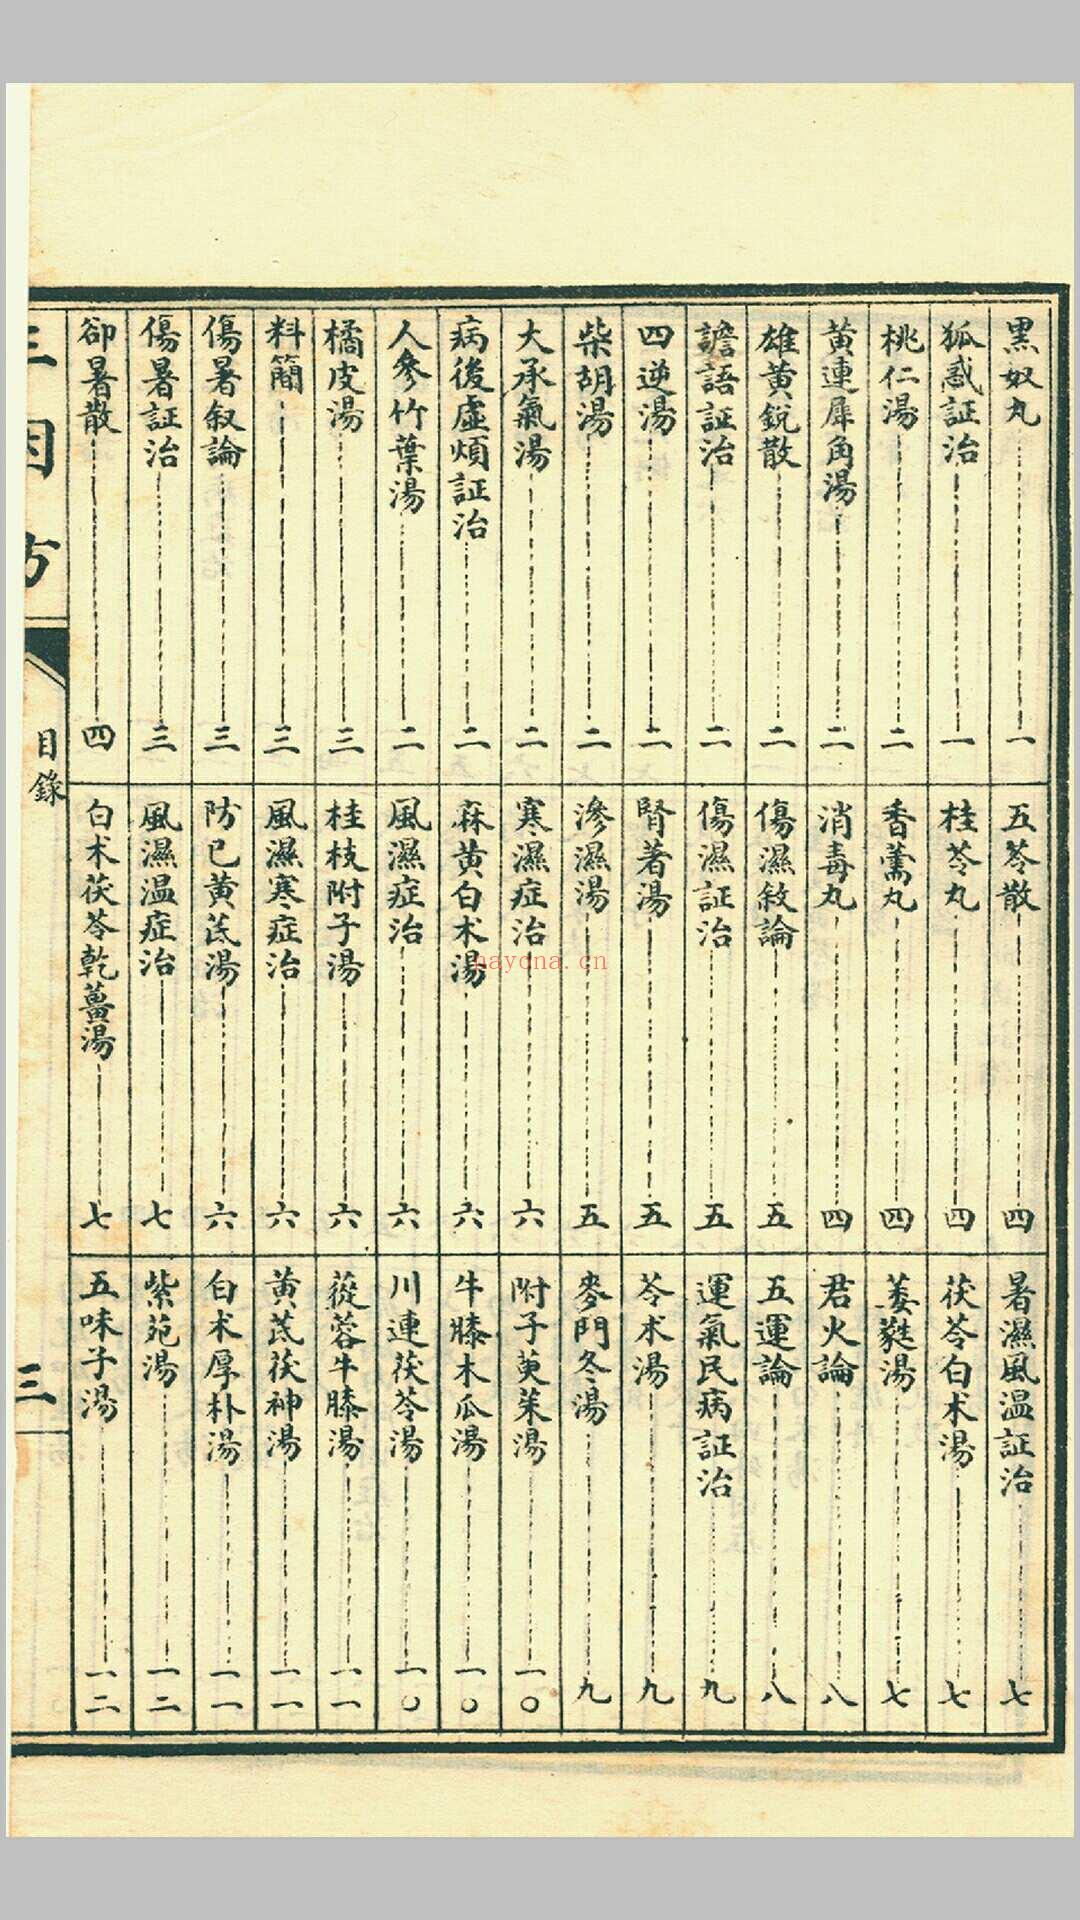 黑奴丸一
狐惑証治一
桃仁湯二
黃連犀角湯二
雄黃銳散二
譫語証治二
四逆湯二
柴胡湯二
大承氣湯二
病後虛煩証治二
人參竹葉湯二
橘皮湯三
料簡三
傷暑叙論三
傷暑証治三
卻暑散四
五苓散四
桂苓丸四
香薷丸四
消毒丸四
傷濕敘論五
傷濕証治五
腎著湯五
滲濕湯五
寒濕症治六
麻黃白朮湯六
風濕症治六
桂枝附子湯六
風濕寒症治六
防已黃茋湯六
風濕温症治七
白朮茯苓乾薑湯七
暑濕風温証治七
茯苓白朮湯七
萎蕤湯七
君火論八
五運論八
運氣民病証治九
苓朮湯九
麥門冬湯九
附子萸茱湯一〇
牛膝木瓜湯一〇
川連茯苓湯一〇
蓯蓉牛膝湯一一
黃茋茯神湯一一
白朮厚朴湯一一
紫菀湯一二
五味子湯一二
三因方
目錄
三
nayona.cn